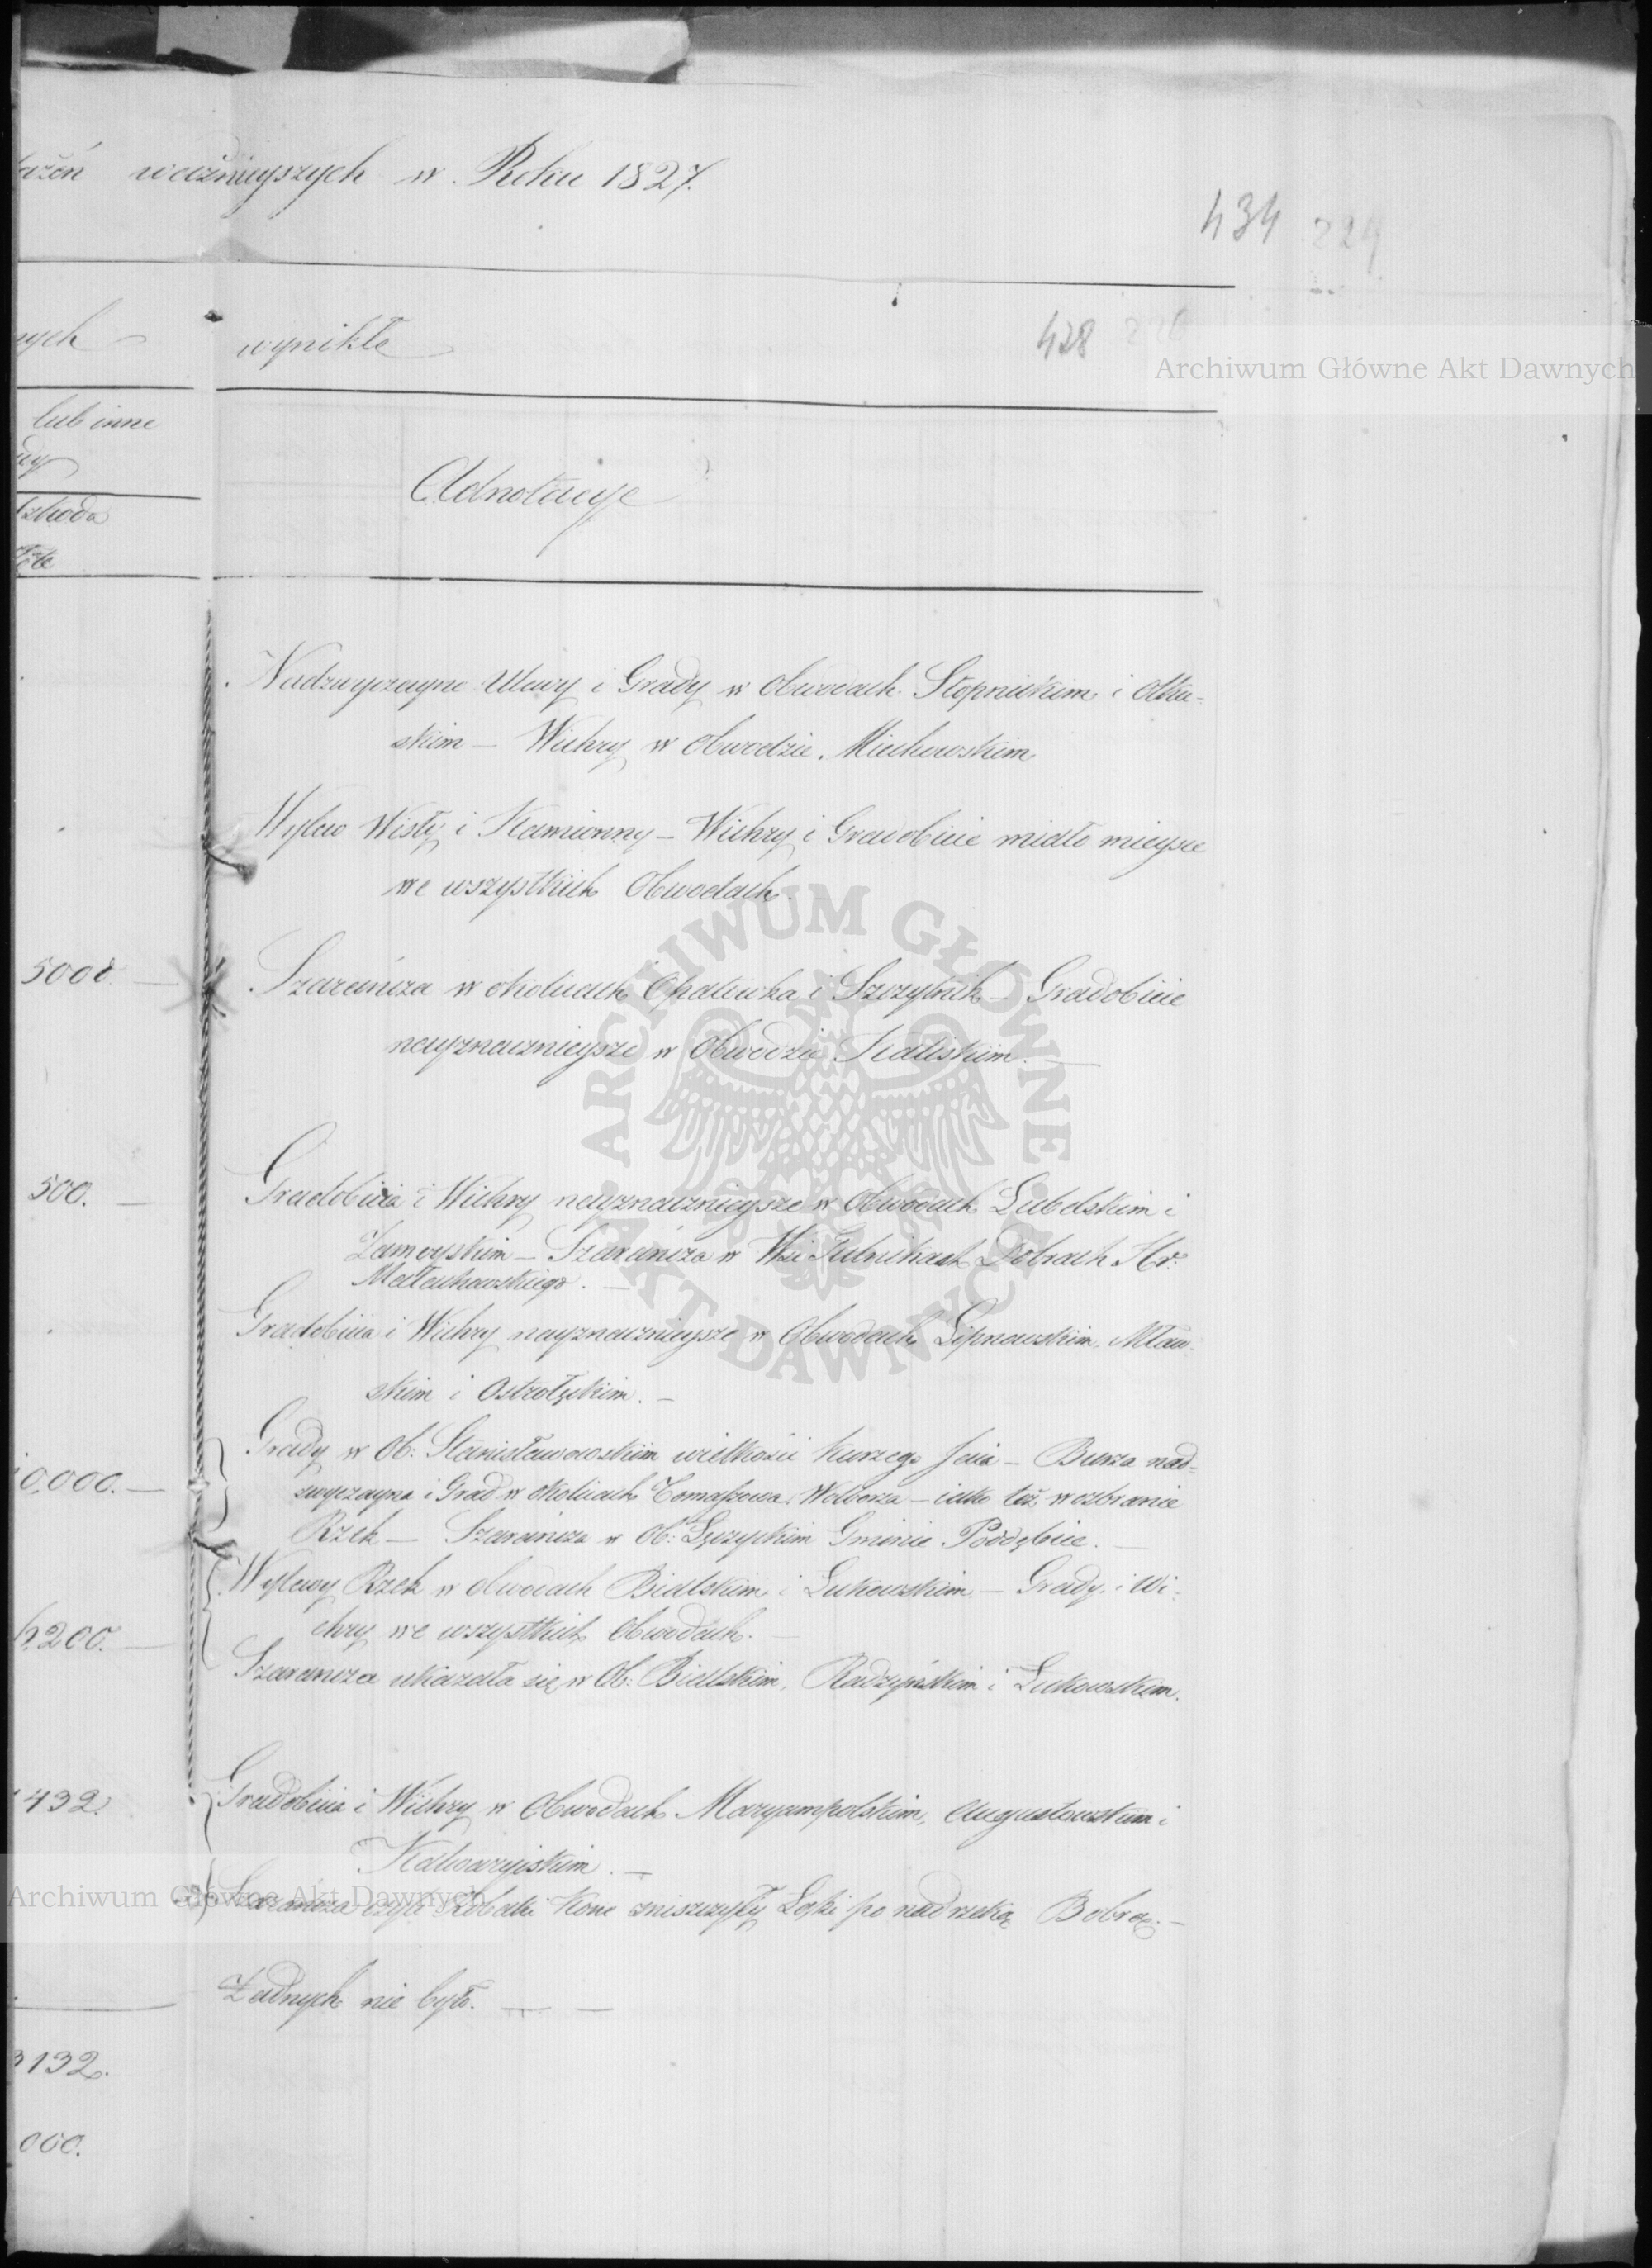 ażeń ważnieyszych w Roku 1827.
434 229
nych wynikłe
428 226
Archiwum Główne Akt Dawnych
lub inne
dy
Adnotacye
szkoda
Złote
Nadzwyczayne Ulewy i Grady w Obwodach Stopnickim i Olku-
skim – Wichry w Obwodzie Miechowskim
Wylew Wisły i Kamionny – Wichry i Gradobicie miało mieysce
we wszystkich Obwodach.
5000 – Szarańcza w okolicach Opatówka i Szczytnik – Gradobicie
nayznacznieysze w Obwodzie Kaliskim. –
500. – Gradobicia i Wichry nayznacznieysze w Obwodach Lubelskim i
Zamoyskim – Szarańcza w Wsi Dobrach Hr.
Małachowskiego. –
Gradobicia i Wichry nayznacznieysze w Obwodach Lipnowskim, Mław-
skim i Ostrołęckim. –
Grady w Ob: Stanisławowskim wielkości kurzego Jaia – Burza nad-
0,000. – zwyczayna i Grad w okolicach Tomaszowa, Wolborza – iako też wezbranie
Rzek – Szarańcza w Ob: Łęczyckim Gminie Poddębice. –
Wylewy Rzek w obwodach Bialskim i Łukowskim – Grady i Wi-
6,200. – chry we wszystkich Obwodach. –
Szarańcza ukazała się w Ob: Bialskim, Radzyńskim i Łukowskim.
432. Gradobicia i Wichry w Obwodach Maryampolskim, Augustowskim i
Kalwaryiskim. –
Archiwum Główne Akt Dawnych
Szarańcza czyli Robaki Kone zniszczyły Łąki po nad rzeką Bobrą. –
Żadnych nie było. – –
3132.
000.
ARCHIWUM GŁÓWNE AKT DAWNYCH